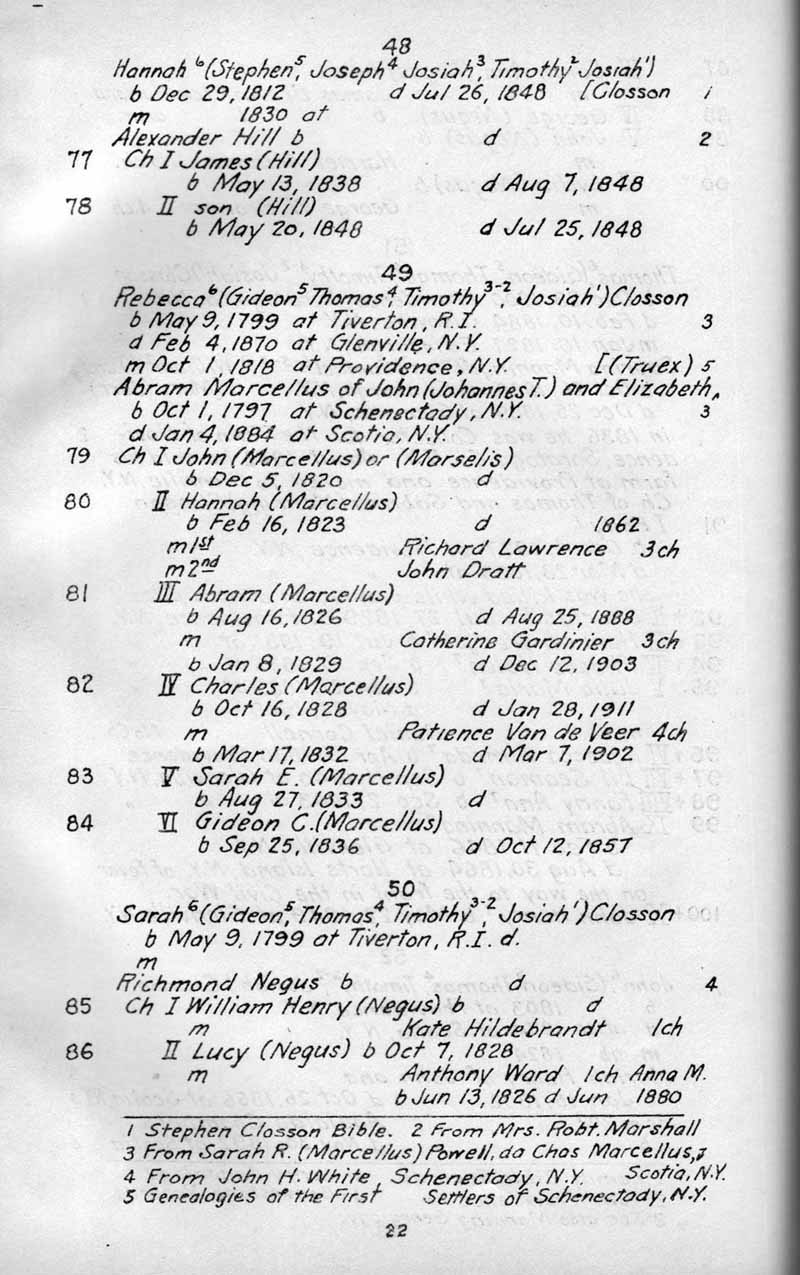 48
Hannah⁶ (Stephen⁵, Joseph⁴ Josiah³, Timothy² Josiah¹)
b Dec 29, 1812 d Jul 26, 1848 [Closson 1
m 1830 at
Alexander Hill b d 2
77 Ch I James (Hill)
b May 13, 1838 d Aug 7, 1848
78 II son (Hill)
b May 20, 1848 d Jul 25, 1848
49
Rebecca⁶ (Gideon⁵ Thomas⁴, Timothy³⁻², Josiah¹) Closson
b May 9, 1799 at Tiverton, R.I. 3
d Feb 4, 1870 at Glenville, N.Y.
m Oct 1, 1818 at Providence, N.Y. [(Truex) 5
Abram Marcellus of John (Johannes T.) and Elizabeth,
b Oct 1, 1797 at Schenectady, N.Y. 3
d Jan 4, 1884 at Scotia, N.Y.
79 Ch I John (Marcellus) or (Marselis)
b Dec 5, 1820 d
80 II Hannah (Marcellus)
b Feb 16, 1823 d 1862
m 1st Richard Lawrence 3ch
m 2nd John Dratt
81 III Abram (Marcellus)
b Aug 16, 1826 d Aug 25, 1888
m Catherine Gardinier 3ch
b Jan 8, 1829 d Dec 12, 1903
82 IV Charles (Marcellus)
b Oct 16, 1828 d Jan 28, 1911
m Patience Van de Veer 4ch
b Mar 17, 1832 d Mar 7, 1902
83 V Sarah E. (Marcellus)
b Aug 27, 1833 d
84 VI Gideon C. (Marcellus)
b Sep 25, 1836 d Oct 12, 1857
50
Sarah⁶ (Gideon⁵, Thomas⁴, Timothy³⁻², Josiah¹) Closson
b May 9, 1799 at Tiverton, R.I. d.
m
Richmond Negus b d 4
85 Ch I William Henry (Negus) b d
m Kate Hildebrandt 1ch
86 II Lucy (Negus) b Oct 7, 1828
m Anthony Ward 1ch Anna M.
b Jun 13, 1826 d Jun 1880
1 Stephen Closson Bible. 2 From Mrs. Robt. Marshall
3 From Sarah R. (Marcellus) Powell, da Chas Marcellus,
4 From John H. White, Schenectady, N.Y. Scotia, N.Y.
5 Genealogies of the First Settlers of Schenectady, N.Y.
22